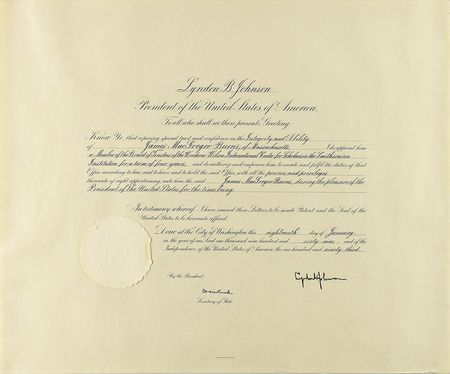 Lyndon B. Johnson
President of the United States of America,
To all who shall see these presents, Greeting:
Know Ye, that reposing special trust and confidence in the Integrity and Ability
of James MacGregor Burns, of Massachusetts I do appoint him
a Member of the Board of Trustees of the Woodrow Wilson International Center for Scholars in the Smithsonian
Institution for a term of four years, and do authorize and empower him to execute and fulfil the duties of that
Office according to law, and to have and to hold the said Office, with all the powers and privileges
thereunto of right appertaining, unto him the said James MacGregor Burns, during the pleasure of the
President of the United States for the time being.
In testimony whereof, I have caused these Letters to be made Patent and the Seal of the
United States to be hereunto affixed.
Done at the City of Washington this eighteenth day of January
in the year of our Lord one thousand nine hundred and sixty-nine and of the
Independence of the United States of America the one hundred and ninety-third.
By the President:
Lyndon B. Johnson
Dean Rusk
Secretary of State